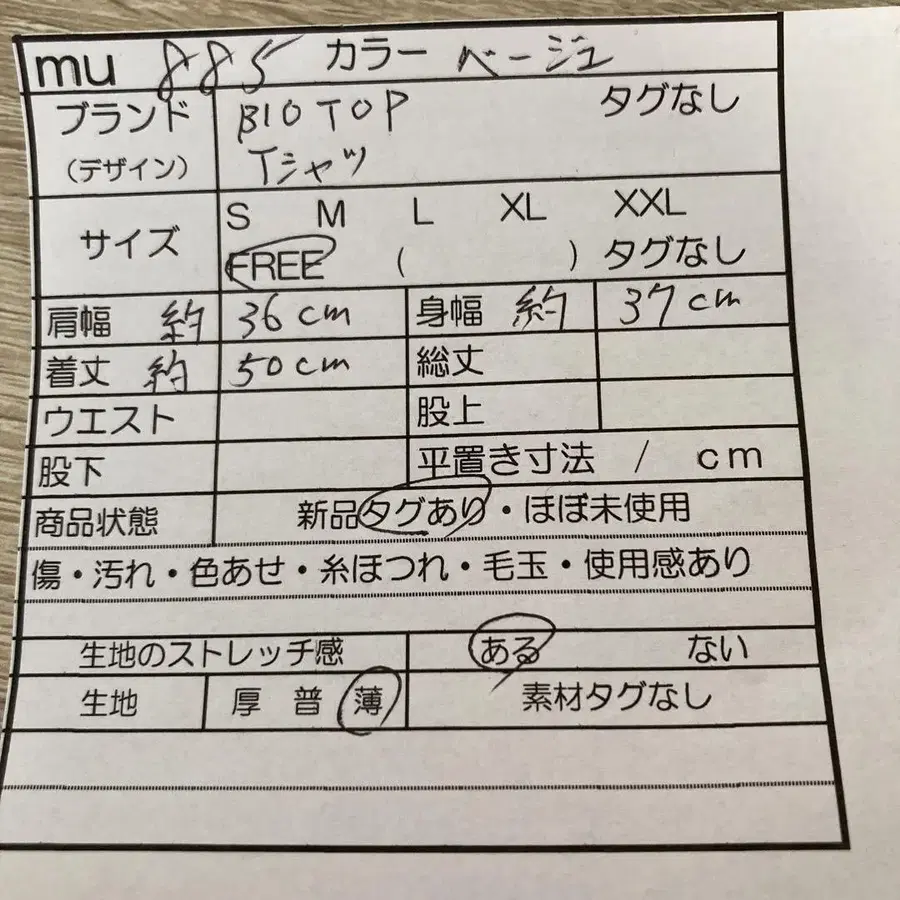 mu 885 カラー ベージュ
ブランド BIOTOP タグなし
(デザイン) Tシャツ
S M L XL XXL
サイズ
FREE ( ) タグなし
肩幅 約 36cm 身幅 約 37cm
着丈 約 50cm 総丈
ウエスト 股上
股下 平置き寸法 / cm
商品状態 新品タグあり・ほぼ未使用
傷・汚れ・色あせ・糸ほつれ・毛玉・使用感あり
生地のストレッチ感 ある ない
生地 厚 普 薄 素材タグなし